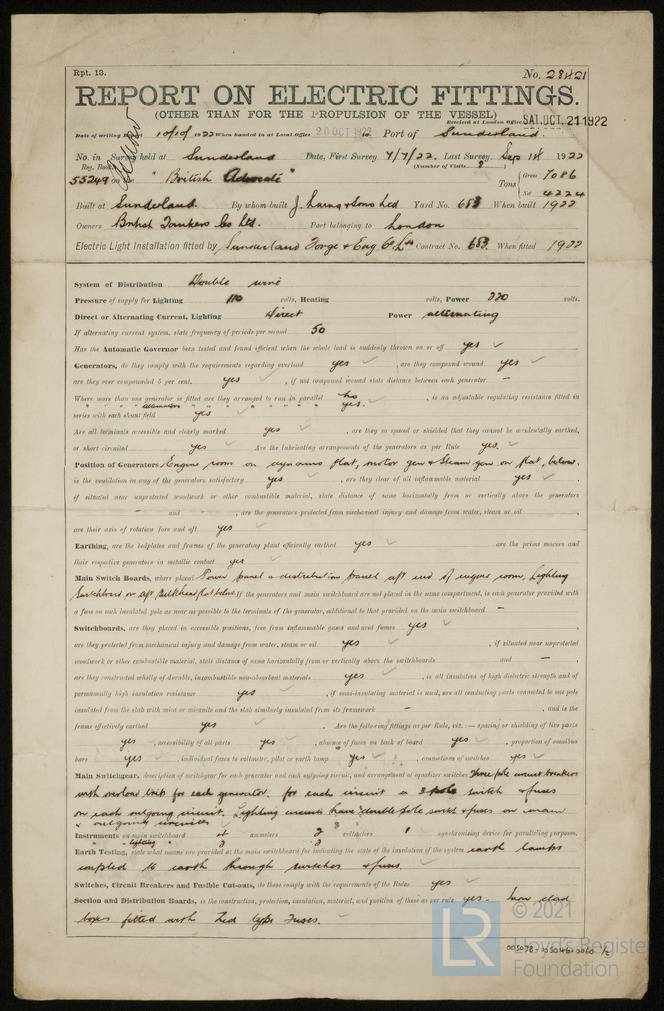 Rpt. 13.
No. 28421
REPORT ON ELECTRIC FITTINGS.
(OTHER THAN FOR THE PROPULSION OF THE VESSEL)
Received at London Office SAT. OCT. 21 1922
Date of writing Report 10/10/1922 When handed in at Local Office 20 OCT 1922 Port of Sunderland.
No. in Survey held at Sunderland Date, First Survey 7/7/22. Last Survey, Sep 18 1922
Reg. Book. (Number of Visits 8)
55249 on the "British Advocate" Tons { Gross 7086
Net 4224
Built at Sunderland. By whom built J. Laing & Sons Ltd Yard No. 683 When built 1922
Owners British Tankers Co Ltd. Port belonging to London
Electric Light Installation fitted by Sunderland Forge & Eng Co Ltd Contract No. 683 When fitted 1922
System of Distribution Double wire
Pressure of supply for Lighting 110 volts, Heating volts, Power 220 volts.
Direct or Alternating Current, Lighting Direct Power alternating
If alternating current system, state frequency of periods per second 50
Has the Automatic Governor been tested and found efficient when the whole load is suddenly thrown on or off yes
Generators, do they comply with the requirements regarding overload yes, are they compound wound yes
are they over compounded 5 per cent. yes, if not compound wound state distance between each generator –
Where more than one generator is fitted are they arranged to run in parallel no, is an adjustable regulating resistance fitted in
" " " " alternators " " " " " " yes.
series with each shunt field yes
Are all terminals accessible and clearly marked yes, are they so spaced or shielded that they cannot be accidentally earthed,
or short circuited yes Are the lubricating arrangements of the generators as per Rule yes.
Position of Generators Engine room on dynamo flat, motor gen & Steam gen on flat, below.
is the ventilation in way of the generators satisfactory yes, are they clear of all inflammable material yes
if situated near unprotected woodwork or other combustible material, state distance of same horizontally from or vertically above the generators
– and –, are the generators protected from mechanical injury and damage from water, steam or oil
are their axis of rotation fore and aft yes
Earthing, are the bedplates and frames of the generating plant efficiently earthed yes are the prime movers and
their respective generators in metallic contact yes
Main Switch Boards, where placed Power panel & distribution panel aft end of engine room, Lighting
Switchboard on aft Bulkhead flat below. If the generators and main switchboard are not placed in the same compartment, is each generator provided with
a fuse on each insulated pole as near as possible to the terminals of the generator, additional to that provided on the main switchboard –
Switchboards, are they placed in accessible positions, free from inflammable gases and acid fumes yes,
are they protected from mechanical injury and damage from water, steam or oil yes, if situated near unprotected
woodwork or other combustible material, state distance of same horizontally from or vertically above the switchboards and –,
are they constructed wholly of durable, incombustible non-absorbent materials yes, is all insulation of high dielectric strength and of
permanently high insulation resistance yes, if semi-insulating material is used, are all conducting parts connected to one pole
insulated from the slab with mica or micanite and the slab similarly insulated from its framework –, and is the
frame effectively earthed yes. Are the following fittings as per Rule, viz.:— spacing or shielding of live parts
yes, accessibility of all parts yes, absence of fuses on back of board yes, proportion of omnibus
bars yes, individual fuses to voltmeter, pilot or earth lamp yes, connections of switches yes
Main Switchgear, description of switchgear for each generator and each outgoing circuit, and arrangement of equalizer switches Three pole circuit breakers
with overload trips for each generator. for each circuit a 3 pole switch & fuses
on each outgoing circuit. Lighting circuits have double pole switch & fuses on main
& outgoing circuits
Instruments on main switchboard ammeters 2 voltmeters 1 synchronising device for paralleling purposes.
" " lighting " 3 3
Earth Testing, state what means are provided at the main switchboard for indicating the state of the insulation of the system earth lamps
coupled to earth through switches & fuses.
Switches, Circuit Breakers and Fusible Cut-outs, do these comply with the requirements of the Rules yes
Section and Distribution Boards, is the construction, protection, insulation, material, and position of these as per rule yes. Iron clad
boxes fitted with Zed type Fuses.
LR
© 2021
Lloyd's Register
Foundation
005078-005046-0060 1/2